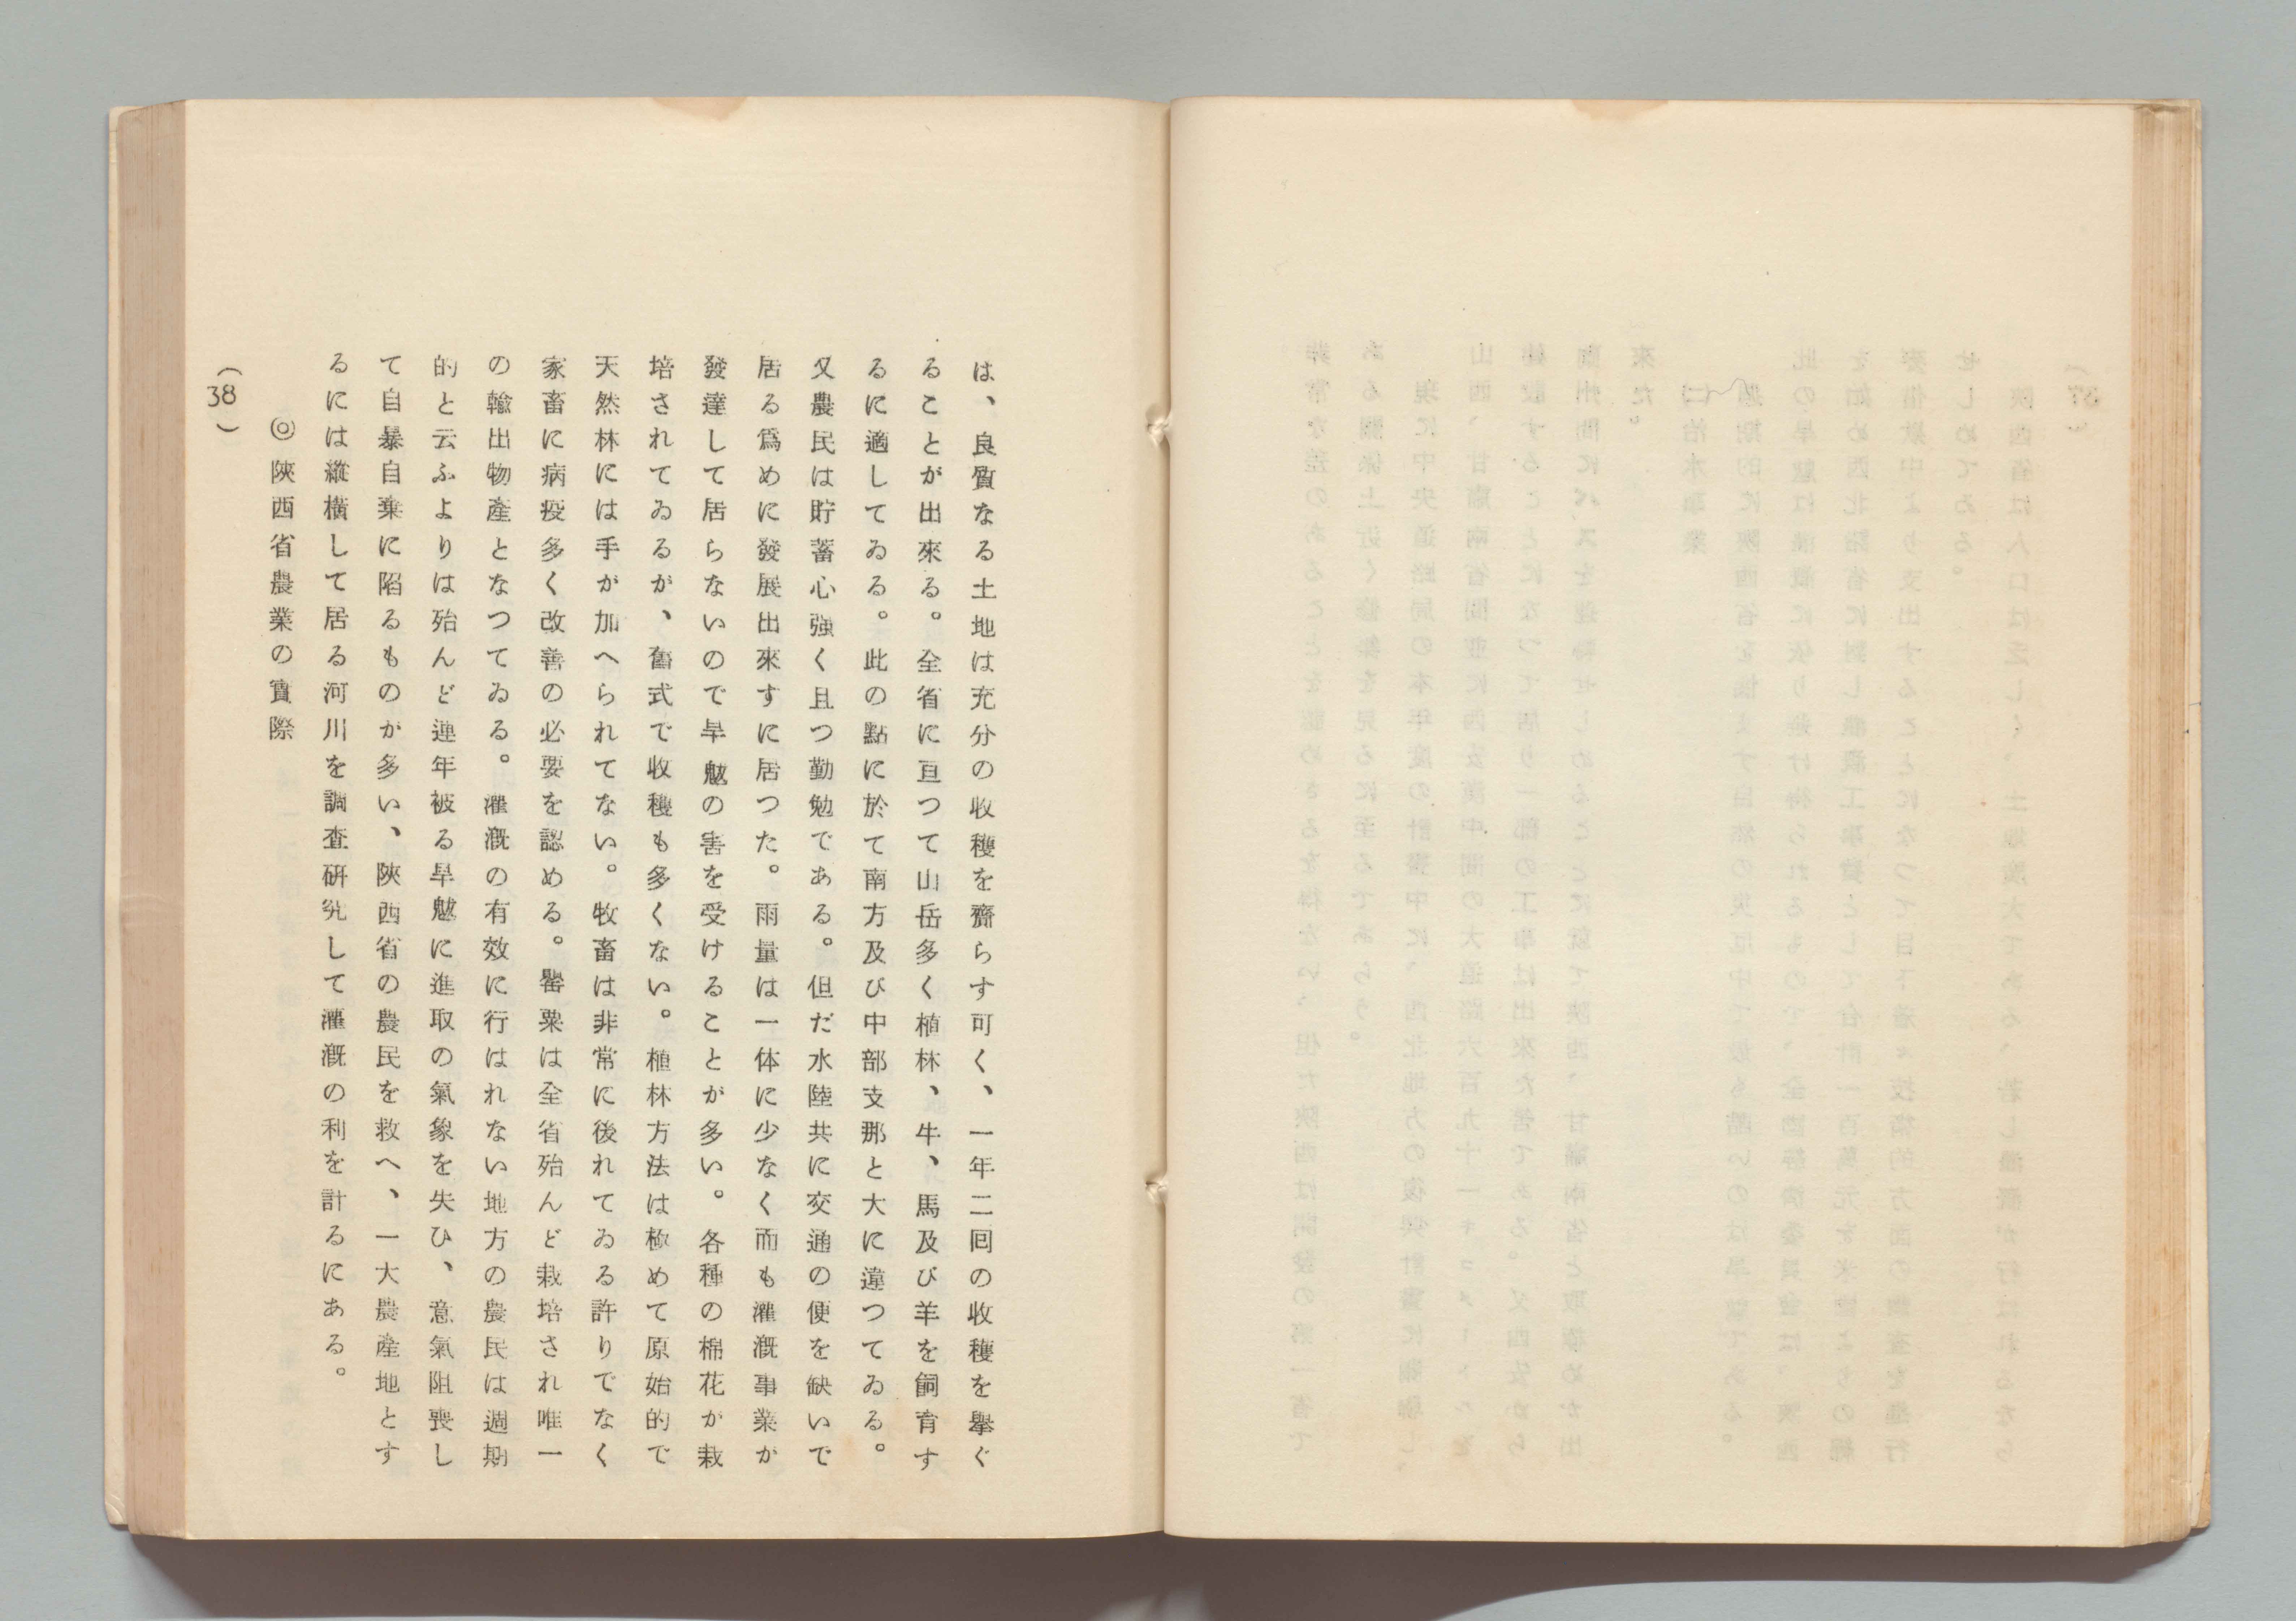 は、良質なる土地は充分の收穫を齎らす可く、一年二囘の收穫を擧ぐ
ることが出來る。全省に亘つて山岳多く植林、牛、馬及び羊を飼育す
るに適してゐる。此の點に於て南方及び中部支那と大に違つてゐる。
又農民は貯蓄心強く且つ勤勉である。但だ水陸共に交通の便を缺いで
居る爲めに發展出來すに居つた。雨量は一体に少なく而も灌漑事業が
發達して居らないので旱魃の害を受けることが多い。各種の棉花が栽
培されてゐるが、舊式で收穫も多くない。植林方法は極めて原始的で
天然林には手が加へられてない。牧畜は非常に後れてゐる許りでなく
家畜に病疫多く改善の必要を認める。罌粟は全省殆んど栽培され唯一
の輸出物產となつてゐる。灌漑の有效に行はれない地方の農民は週期
的と云ふよりは殆んど連年被る旱魃に進取の氣象を失ひ、意氣阻喪し
て自暴自棄に陷るものが多い、陝西省の農民を救へ、一大農產地とす
るには縱橫して居る河川を調査硏究して灌漑の利を計るにある。
◎陝西省農業の實際
(38)